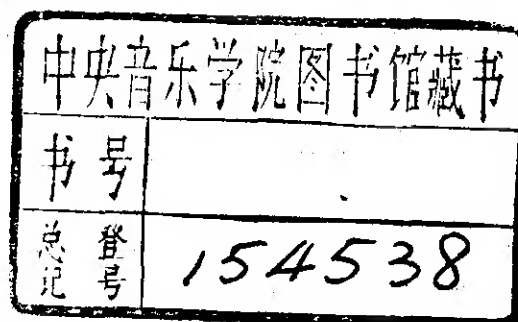 中央音乐学院图书馆藏书
书号
总登记号 154538